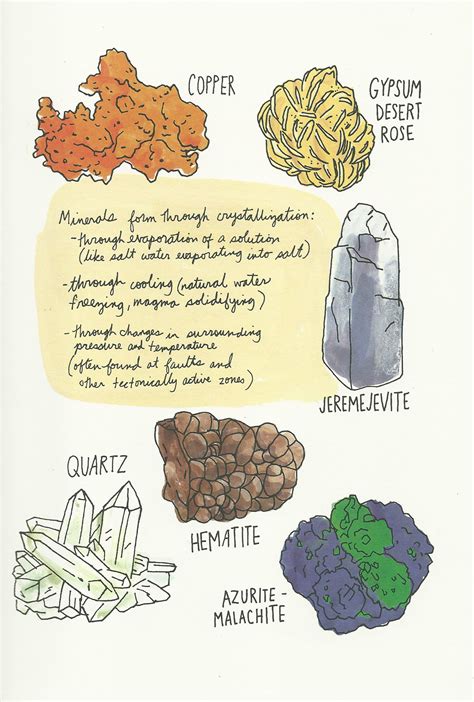 COPPER
GYPSUM
DESERT
ROSE
Minerals form through crystallization:
-through evaporation of a solution
(like salt water evaporating into salt)
-through cooling (natural water
freezing, magma solidifying)
-through changes in surrounding
pressure and temperature
(often found at faults and
other tectonically active zones)
JEREMEJEVITE
QUARTZ
HEMATITE
AZURITE-
MALACHITE